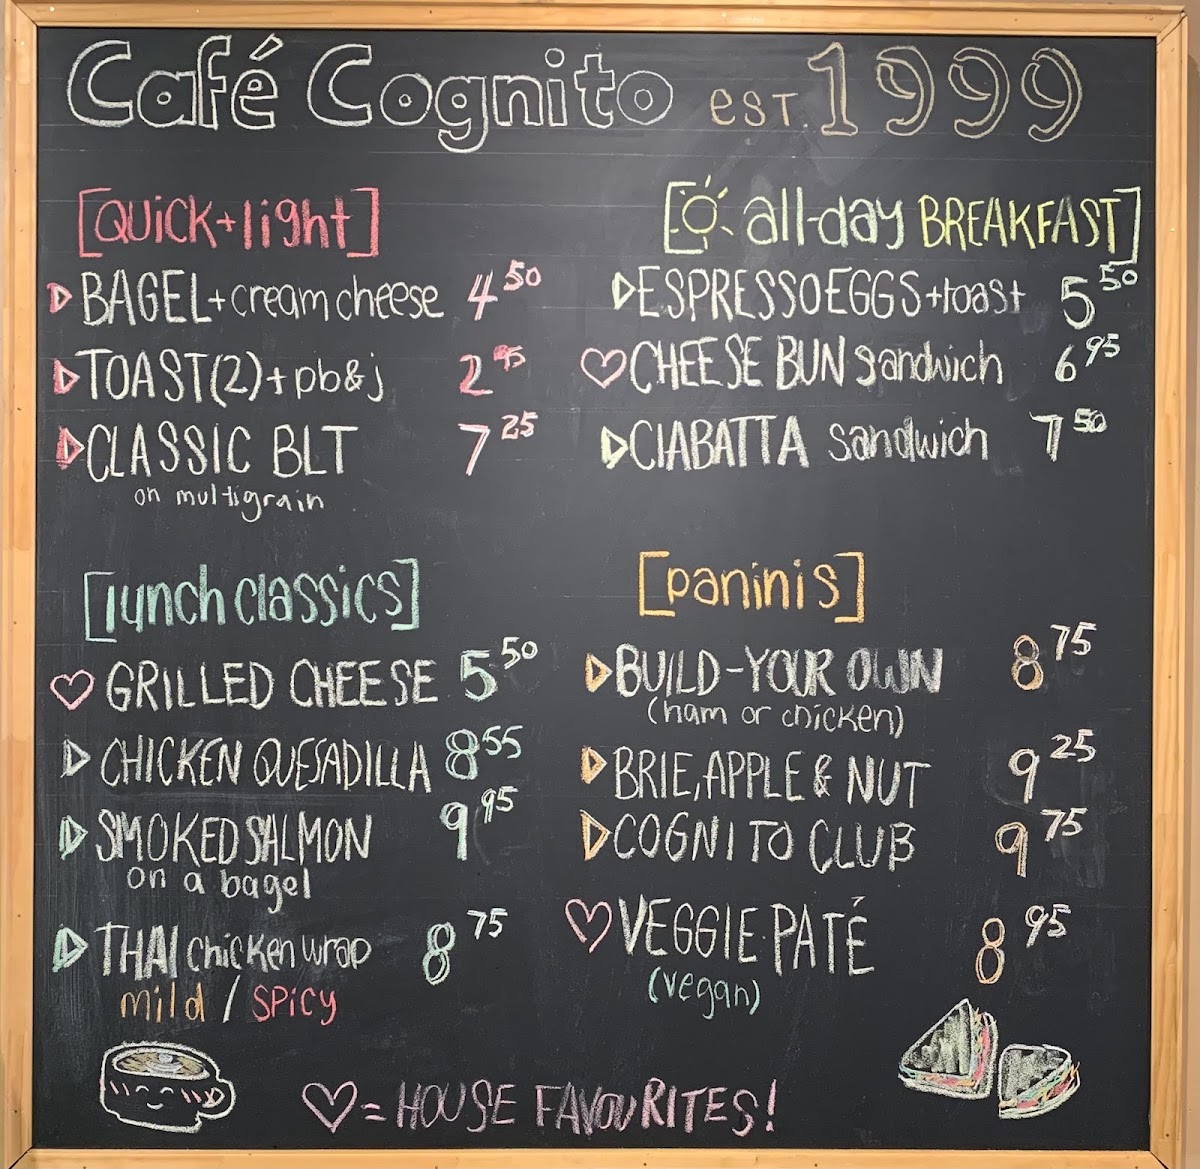 Café Cognito EST 1999
[QUICK + light]
BAGEL + cream cheese 4 50
TOAST (2) + pb & j 2 95
CLASSIC BLT 7 25
on multigrain
[all-day BREAKFAST]
ESPRESSO EGGS + toast 5 50
CHEESE BUN sandwich 6 95
CIABATTA sandwich 7 50
[lunch classics]
GRILLED CHEESE 5 50
CHICKEN QUESADILLA 8 55
SMOKED SALMON 9 95
on a bagel
THAI chicken wrap 8 75
mild / SPICY
[paninis]
BUILD-YOUR OWN 8 75
(ham or chicken)
BRIE, APPLE & NUT 9 25
COGNITO CLUB 9 75
VEGGIE PATÉ 8 95
(vegan)
♡ = HOUSE FAVOURITES!